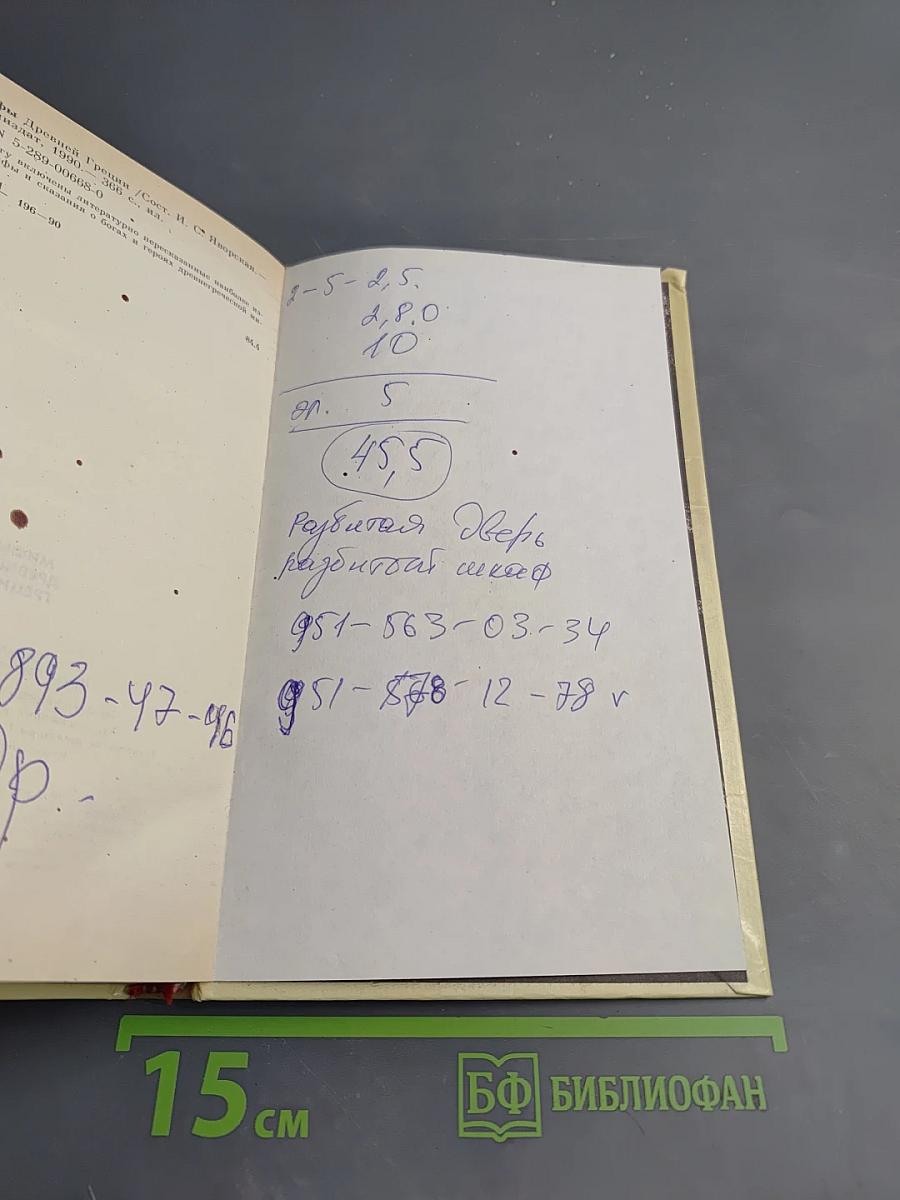 фы Древней Греции /Сост. И. С. Яворская.—
издат, 1990.— 366 с., ил.
N 5-289-00668-0
гу включены литературно пересказанные наиболее из-
фы и сказания о богах и героях древнегреческой ми-
196—90
84.4
893-47-46
др.
2-5-2,5.
2,8.0
10
эл. 5
45,5
Разбитая дверь
разбитый шкаф
951-563-03-34
951-578-12-78 v
15 см
БФ БИБЛИОФАН